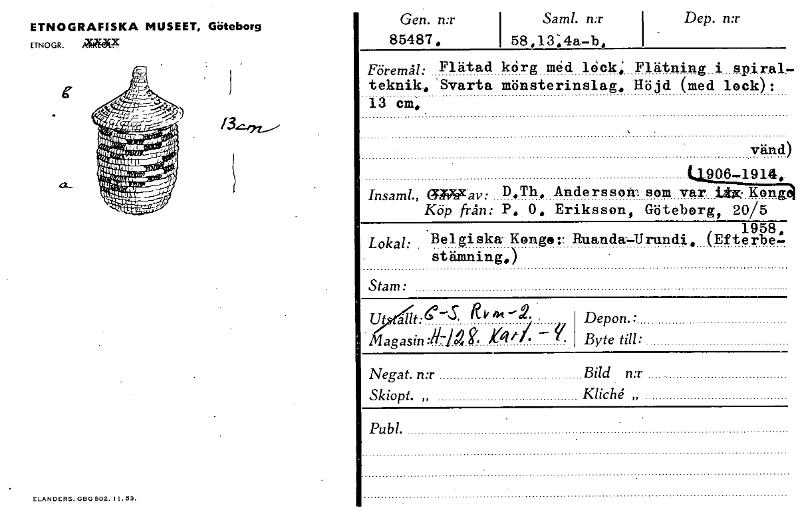 ETNOGRAFISKA MUSEET, Göteborg
ETNOGR.
b
13cm
a
ELANDERS. GBG 502. 11. 53.
Gen. n:r Saml. n:r Dep. n:r
85487. 58.13.4a-b.
Föremål: Flätad korg med lock. Flätning i spiral-
teknik. Svarta mönsterinslag. Höjd (med lock):
13 cm.
vänd)
1906-1914.
Insaml., Gåva av: D.Th. Andersson som var i Kongo
Köp från: P. O. Eriksson, Göteborg, 20/5
1958.
Lokal: Belgiska Kongo: Ruanda-Urundi. (Efterbe-
stämning.)
Stam:
Utställt: G-S. Rvm-2. Depon.:
Magasin: H-128. Kart. -4. Byte till:
Negat. n:r Bild n:r
Skiopt. „ Kliché „
Publ.